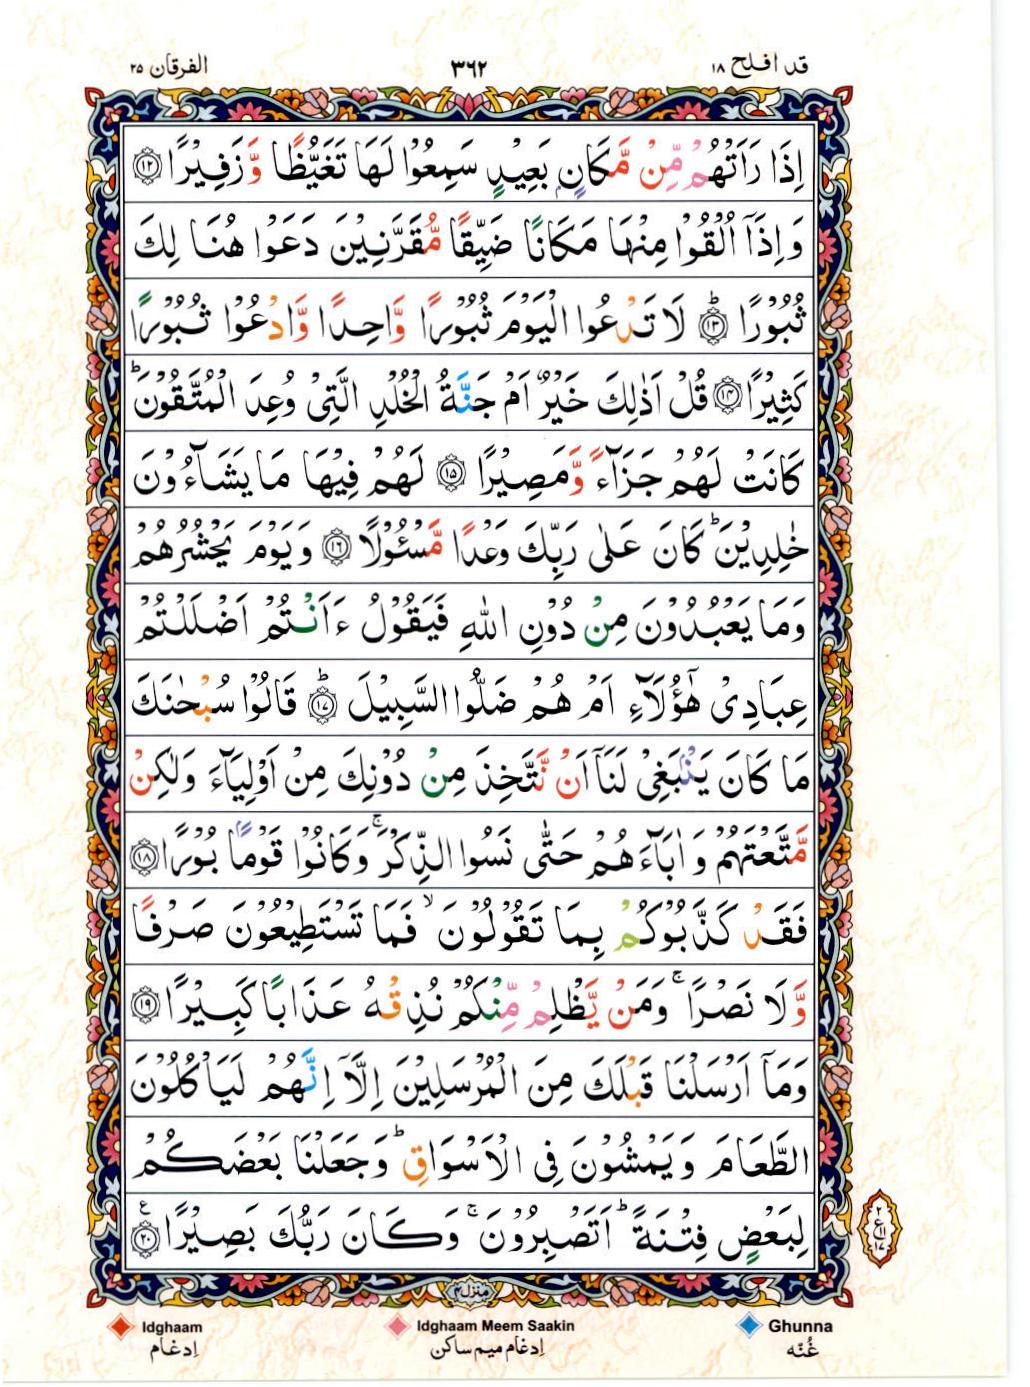 قد افلح ۱۸
۳۶۲
الفرقان ۲۵
اِذَا رَاَتْهُمْ مِّنْ مَّكَانٍۭ بَعِيْدٍ سَمِعُوْا لَهَا تَغَيُّظًا وَّزَفِيْرًا ﴿۱۲﴾
وَاِذَآ اُلْقُوْا مِنْهَا مَكَانًا ضَيِّقًا مُّقَرَّنِيْنَ دَعَوْا هُنَا لِكَ
ثُبُوْرًا ﴿۱۳﴾ؕ لَا تَدْعُوا الْيَوْمَ ثُبُوْرًا وَّاحِدًا وَّادْعُوْا ثُبُوْرًا
كَثِيْرًا ﴿۱۴﴾ قُلْ اَذٰلِكَ خَيْرٌ اَمْ جَنَّةُ الْخُلْدِ الَّتِىْ وُعِدَ الْمُتَّقُوْنَؕ
كَانَتْ لَهُمْ جَزَآءً وَّمَصِيْرًا ﴿۱۵﴾ لَهُمْ فِيْهَا مَا يَشَآءُوْنَ
خٰلِدِيْنَؕ كَانَ عَلٰى رَبِّكَ وَعْدًا مَّسْـُٔوْلًا ﴿۱۶﴾ وَيَوْمَ يَحْشُرُهُمْ
وَمَا يَعْبُدُوْنَ مِنْ دُوْنِ اللّٰهِ فَيَقُوْلُ ءَاَنْتُمْ اَضْلَلْتُمْ
عِبَادِىْ هٰٓؤُلَآءِ اَمْ هُمْ ضَلُّوا السَّبِيْلَ ﴿۱۷﴾ؕ قَالُوْا سُبْحٰنَكَ
مَا كَانَ يَنْۢبَغِىْ لَنَآ اَنْ نَّتَّخِذَ مِنْ دُوْنِكَ مِنْ اَوْلِيَآءَ وَلٰكِنْ
مَّتَّعْتَهُمْ وَاٰبَآءَهُمْ حَتّٰى نَسُوا الذِّكْرَۚ وَكَانُوْا قَوْمًۢا بُوْرًا ﴿۱۸﴾
فَقَدْ كَذَّبُوْكُمْ بِمَا تَقُوْلُوْنَۙ فَمَا تَسْتَطِيْعُوْنَ صَرْفًا
وَّلَا نَصْرًاۚ وَمَنْ يَّظْلِمْ مِّنْكُمْ نُذِقْهُ عَذَابًا كَبِيْرًا ﴿۱۹﴾
وَمَآ اَرْسَلْنَا قَبْلَكَ مِنَ الْمُرْسَلِيْنَ اِلَّآ اِنَّهُمْ لَيَاْكُلُوْنَ
الطَّعَامَ وَيَمْشُوْنَ فِى الْاَسْوَاقِؕ وَجَعَلْنَا بَعْضَكُمْ
لِبَعْضٍ فِتْنَةًؕ اَتَصْبِرُوْنَۚ وَكَانَ رَبُّكَ بَصِيْرًا ﴿۲۰﴾ع
۲
ع
۱۱
۱۷
منزل۴
Idghaam
اِدغام
Idghaam Meem Saakin
اِدغام میم ساکن
Ghunna
غُنّه